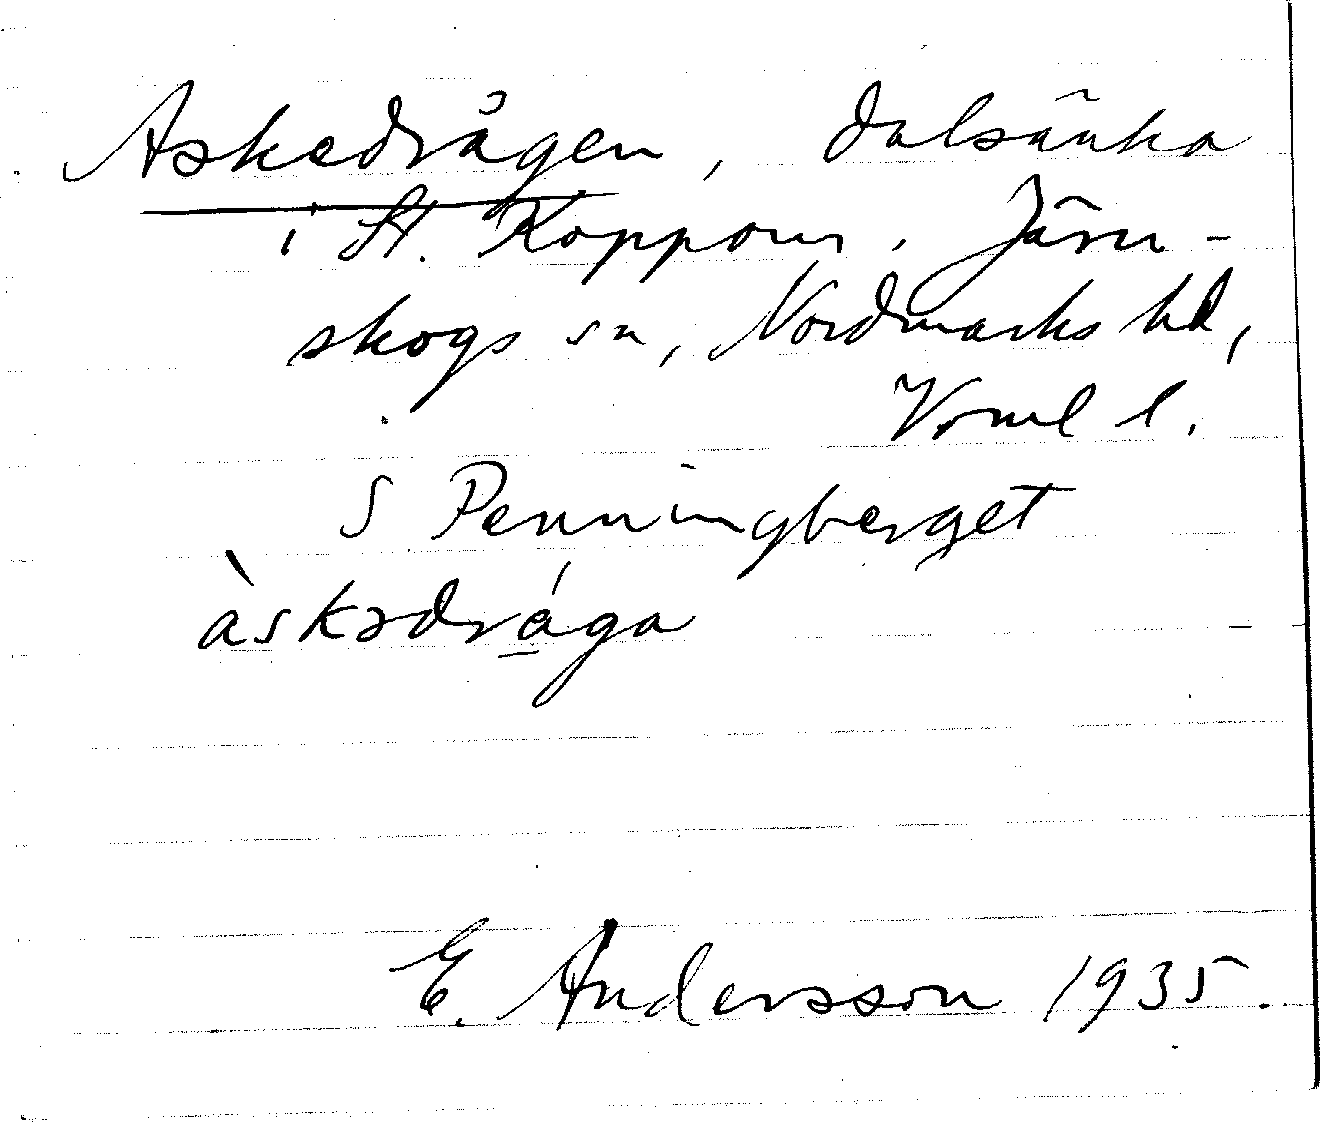 Askedrågen, dalsänka
i St. Koppom, Järn-
skogs sn, Nordmarks hd,
Vrml l.
S Penningberget
àskədrága
E. Andersson 1935.